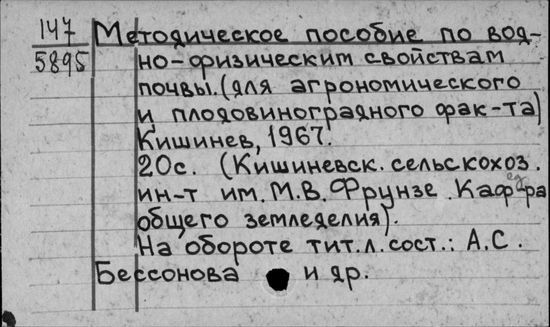 147
5895
Методическое пособие по вод-
но-физическим свойствам
почвы.(для агрономического
и плодовиноградного фак-та)
Кишинев, 1967.
20с. (Кишиневск. сельскохоз.
ин-т им. М.В. Фрунзе. Кафедра
общего земледелия).
На обороте тит.л. сост.: А.С.
Бессонова и др.